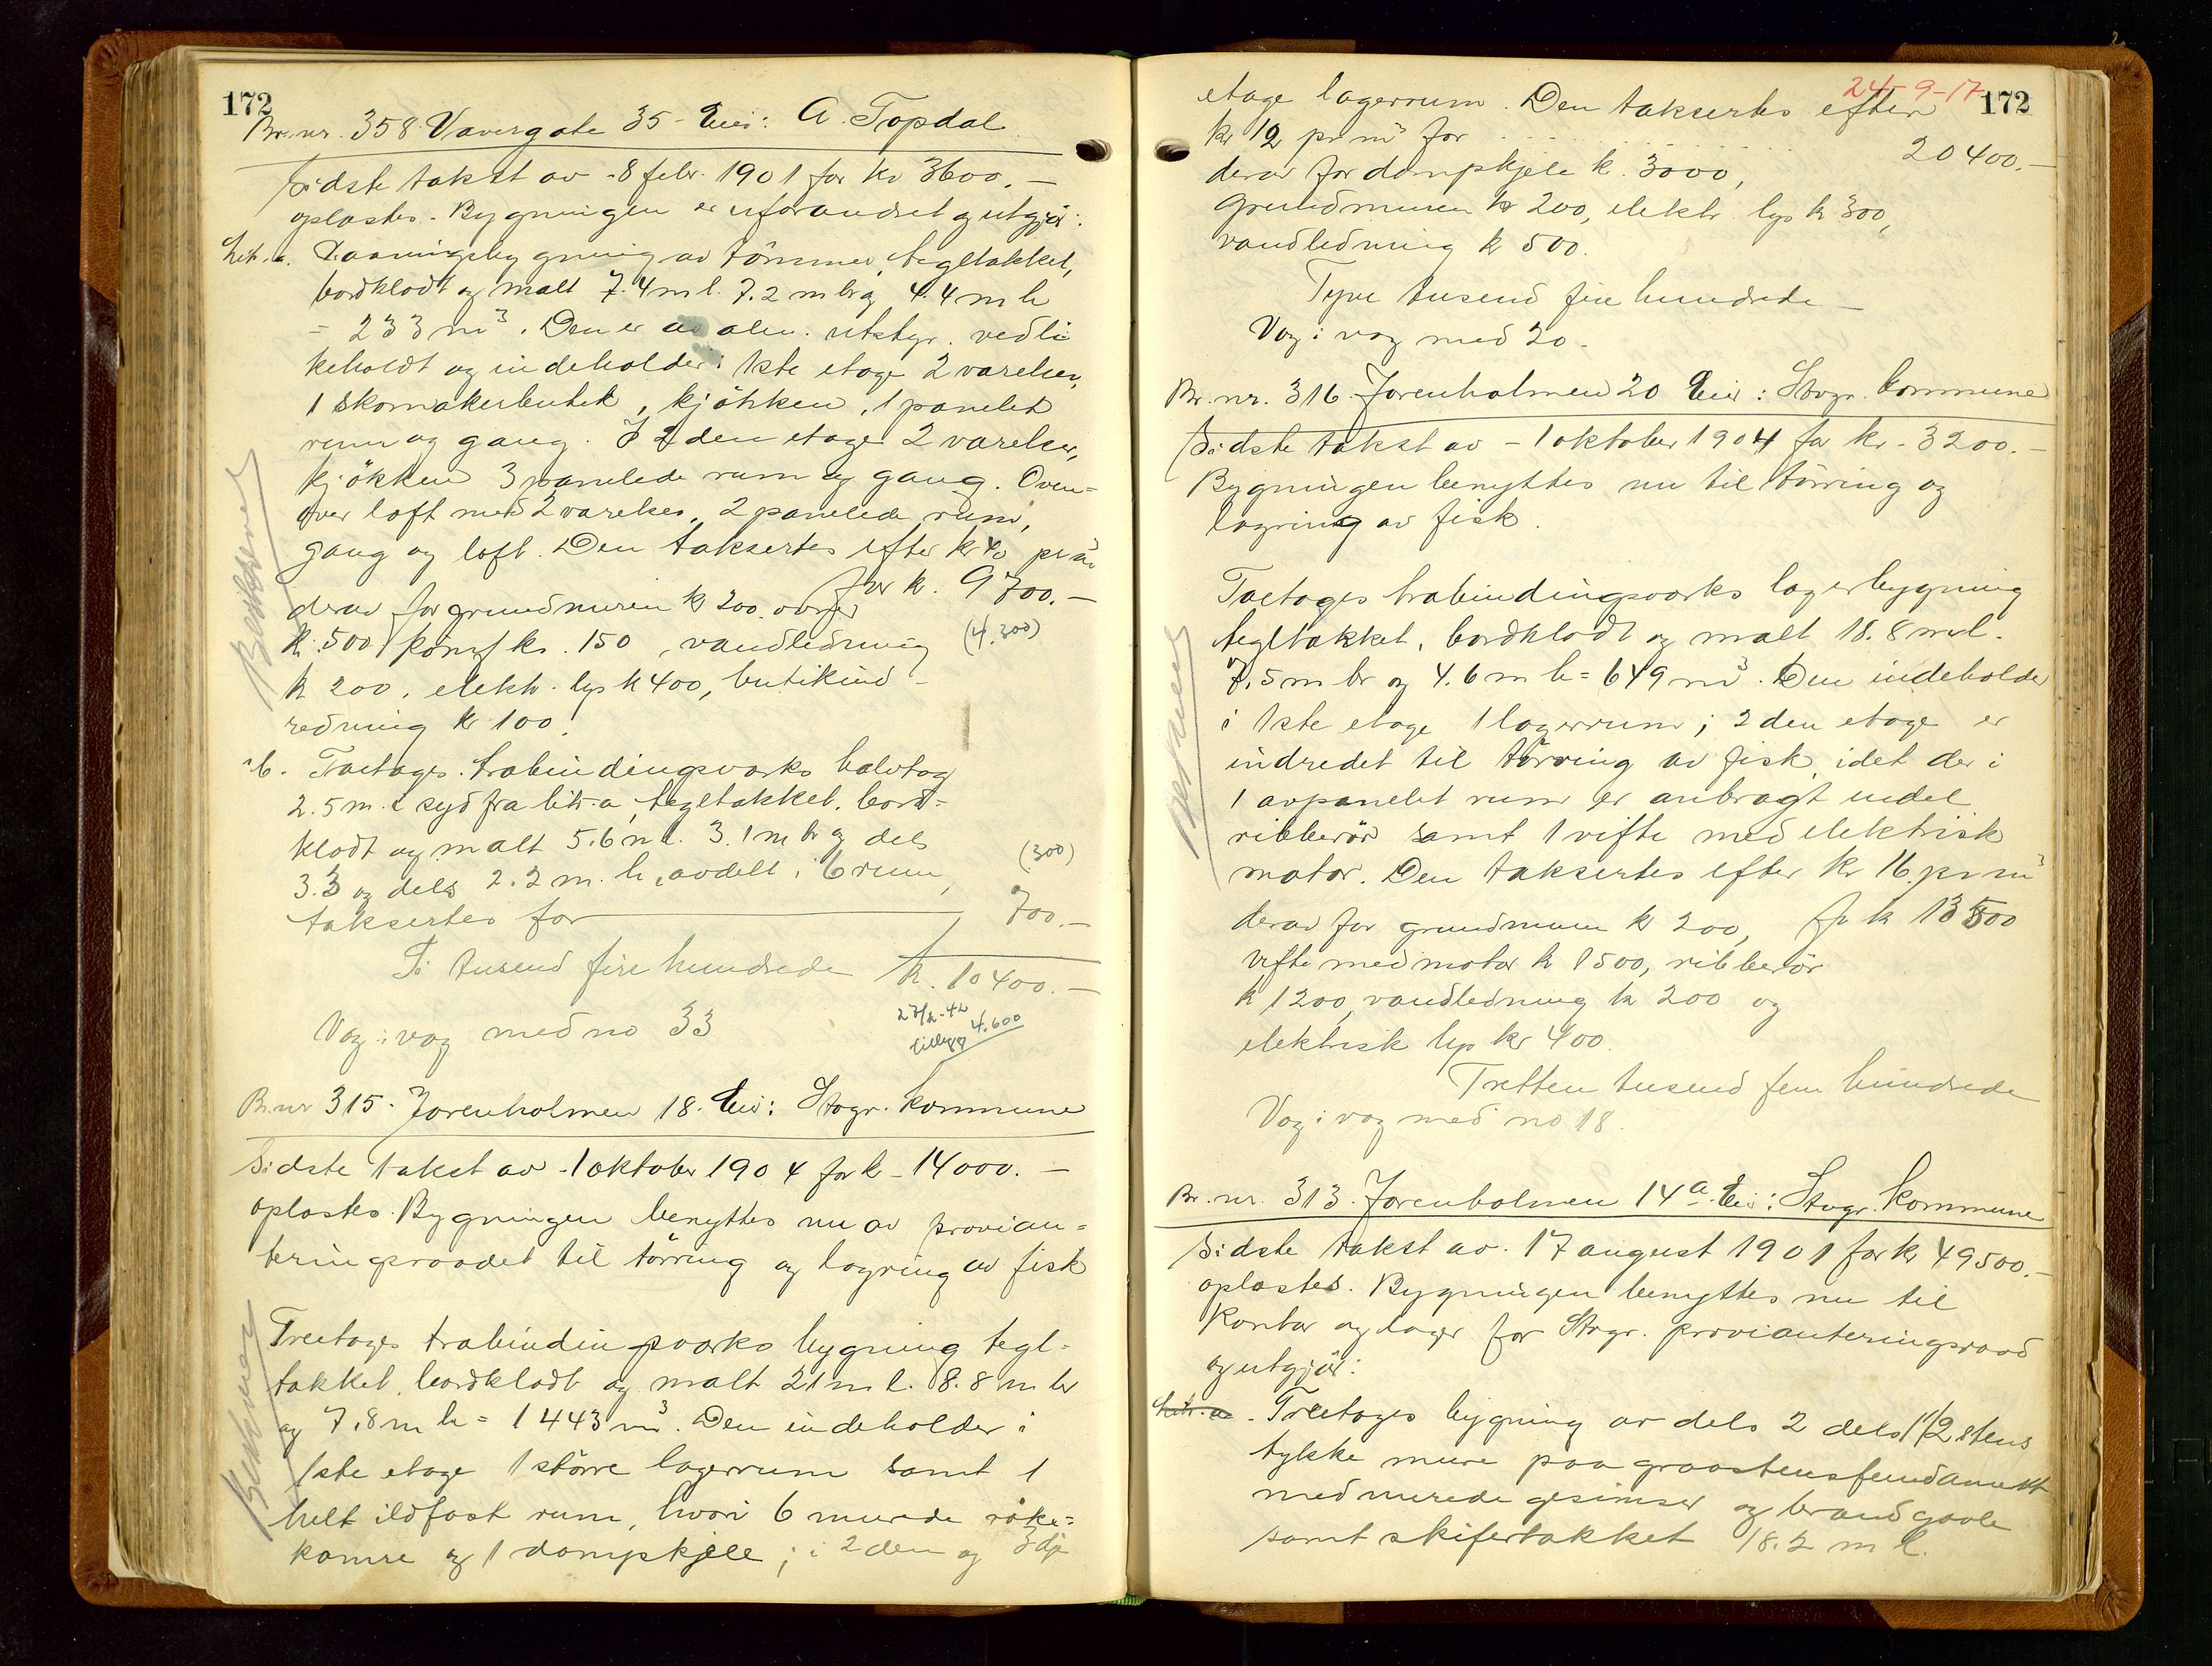 172
Br.nr. 358 Vavergate 35 - Eier: A. Topdal
Sidste takst av - 8 febr. 1901 for kr 3600.—
oplæstes. Bygningen er uforandret og utgjør:
Litr. a. Vaaningsbygning av tømmer, tegltækket,
bordklædt og malt 7.4 m l. 7.2 m br og 4.4 m h
= 233 m³. Den er av alm. utstyr. vedli
keholdt og indeholder: 1ste etage 2 værelser,
1 skomakerbutik, kjøkken, 1 panelet
rum og gang. I 2den etage 2 værelser,
kjøkken 3 panelede rum og gang. Oven=
over loft med 2 værelser, 2 panelede rum,
gang og loft. Den taksertes efter kr 40 pr m³
for k. 9700.—
derav for grundmuren kr 200, ovner
k. 500, komf kr. 150, vandledning (4.300)
k 200, elektr. lys k 400, butikind-
redning kr 100.
" b. Toetages træbindingsværks halvtag
2.5 m. i syd fra litr. a, tegltækket, bord=
klædt og malt 5.6 m l. 3.1 m br og dels
3.3 og dels 2.2 m. h, avdelt i 6 rum, (300)
taksertes for 700.—
Ti tusend fire hundrede k. 10400.—
Væg i væg med no 33
27/2-42
tillegg 4.600
Br.nr 315. Jorenholmen 18. Eier: Stvgr. kommune
Sidste takst av - 1 oktober 1904 for k - 14000.—
oplæstes. Bygningen benyttes nu av provian=
teringsraadet til tørring og lagring av fisk
Treetages træbindingsværks bygning tegl=
tækket, bordklædt og malt 21 m l. 8.8 m br
og 7.8 m h = 1443 m³. Den indeholder i
1ste etage 1 større lagerrum samt 1
helt ildfast rum, hvori 6 murede røke=
kamre og 1 dampkjele; i 2den og 3dje
24-9-17
172
etage lagerrum. Den taksertes efter
kr 12 pr m³ for . . . . . 20400.—
derav for dampkjele k. 3000,
Grundmuren kr 200, elektr lys k 300,
vandledning kr 500.
Tyve tusend fire hundrede —
Væg i væg med 20.
Br. nr. 316. Jorenholmen 20 Eier: Stvgr. kommune
Sidste takst av - 1 oktober 1904 for kr. 3200.—
Bygningen benyttes nu til tørring og
lagring av fisk.
Toetages træbindingsværks lagerbygning
tegltækket, bordklædt og malt 18.8 m l.
7.5 m br og 4.6 m h = 649 m³. Den indeholder
i 1ste etage 1 lagerrum; 2den etage er
indredet til tørring av fisk, idet der i
1 avpanelet rum er anbragt endel
ribberør samt 1 vifte med elektrisk
motor. Den taksertes efter kr 16 pr m³
derav for grundmuren k 200, for k 13500
vifte med motor k 1500, ribberør
k 1200, vandledning kr 200 og
elektrisk lys kr 400.
Tretten tusend fem hundrede
Væg i væg med no 18.
Br. nr. 313. Jorenholmen 14a. Eier: Stvgr. kommune
Sidste takst av. 17 august 1901 for kr 49500.—
oplæstes. Bygningen benyttes nu til
kontor og lager for Stvgr. provianteringsraad
og utgjør:
Litr. a. Treetages bygning av dels 2 dels 1 1/2 stens
tykke mure paa graastensfundament
med murede gesimser og brandgavle
samt skifertækket 18.2 m l.